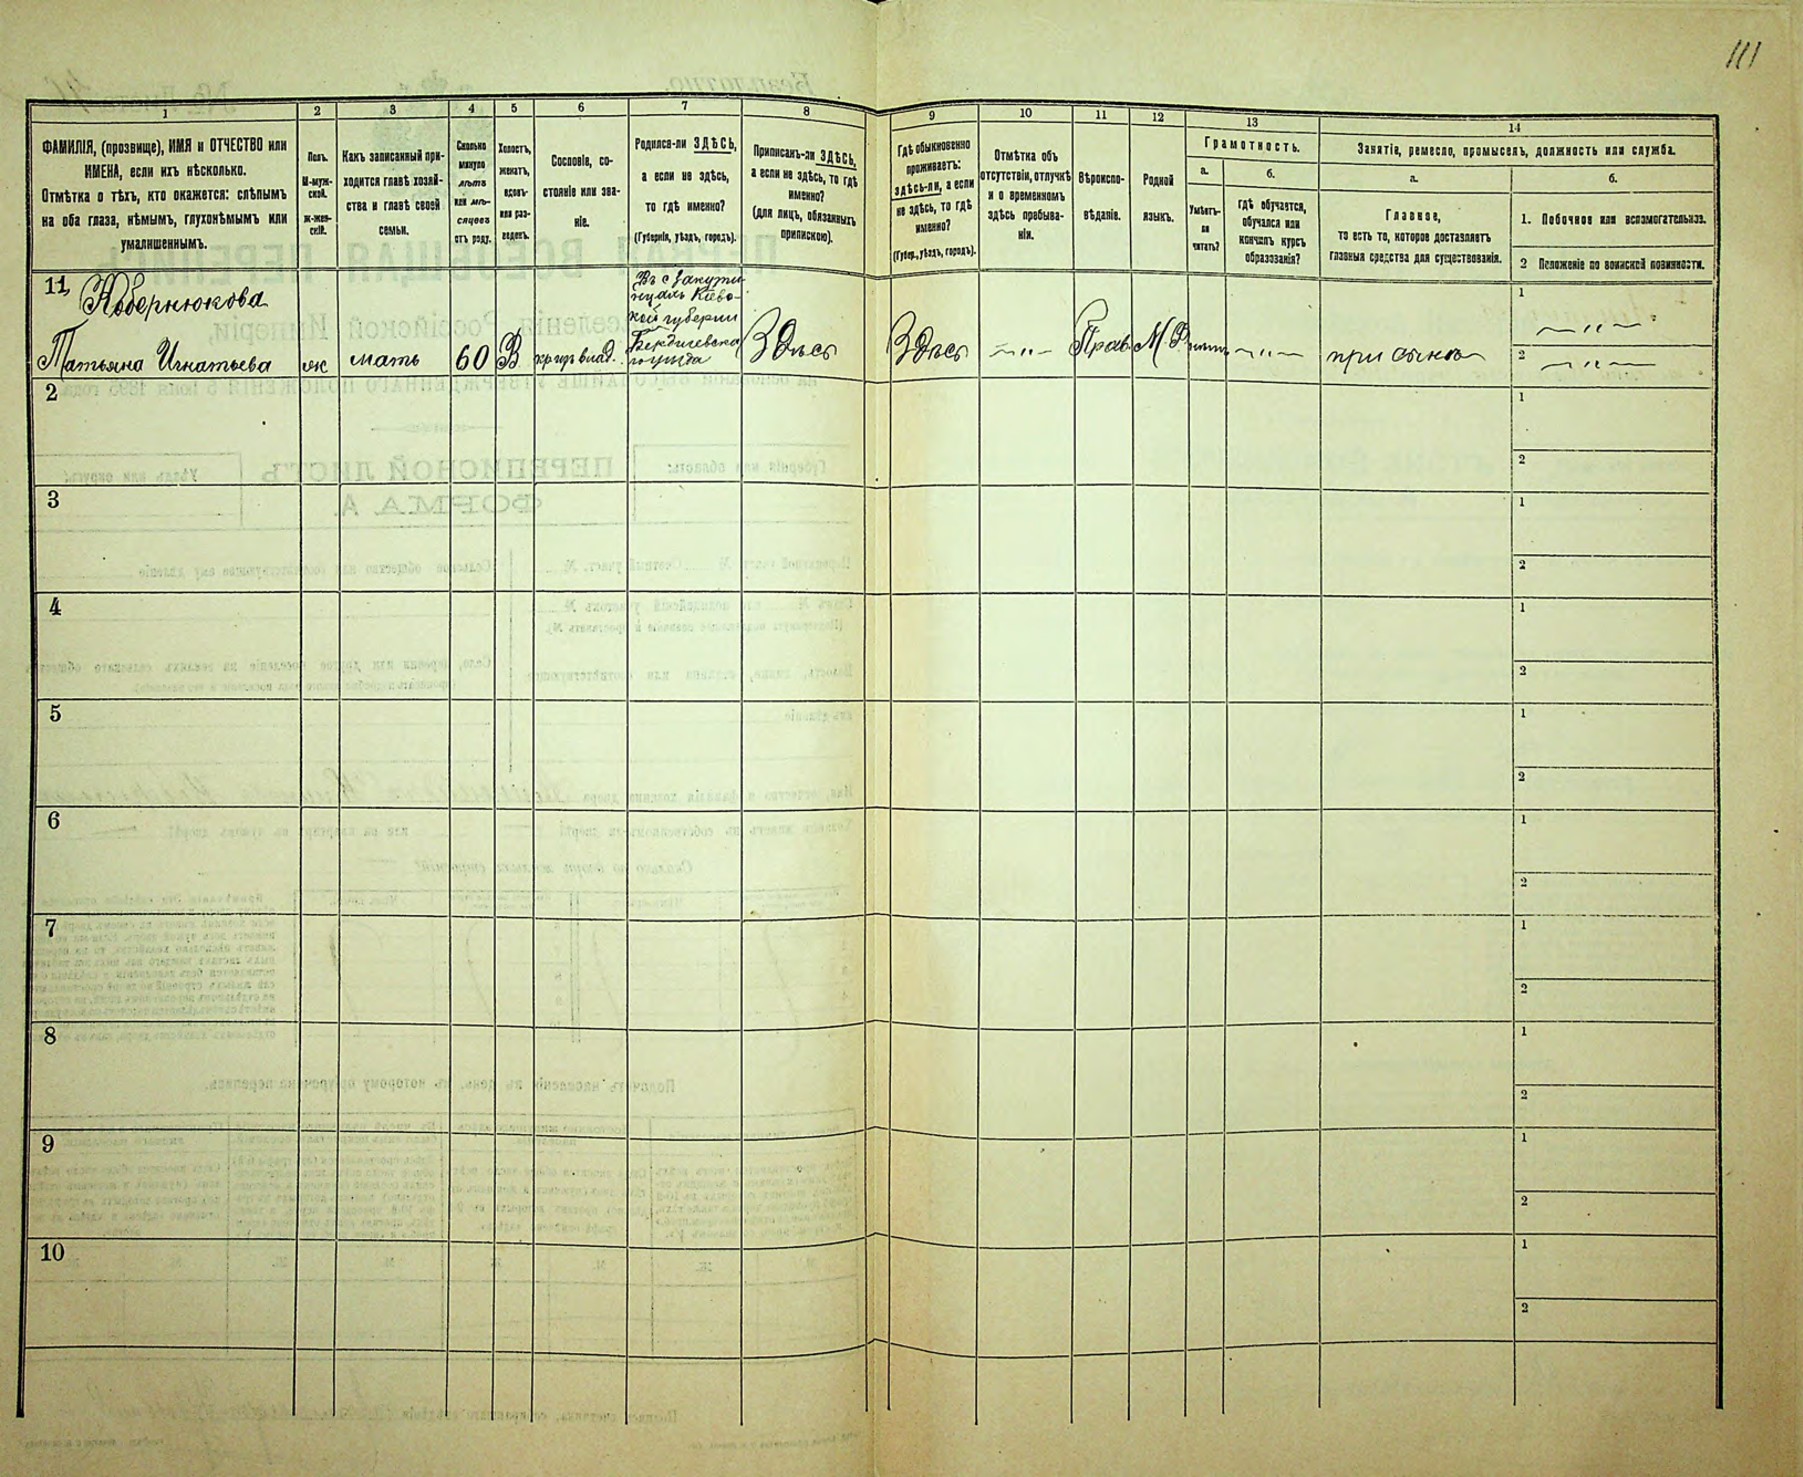 111
1
2
3
4
5
6
7
8
9
10
11
12
13
14
ФАМИЛІЯ, (прозвище), ИМЯ и ОТЧЕСТВО или
ИМЕНА, если ихъ нѣсколько.
Отмѣтка о тѣхъ, кто окажется: слѣпымъ
на оба глаза, нѣмымъ, глухонѣмымъ или
умалишеннымъ.
Полъ.
М-муж-
ской.
ж-жен-
скій.
Какъ записанный при-
ходится главѣ хозяй-
ства и главѣ своей
семьи.
Сколько
минуло
лѣтъ
или мѣ-
сяцевъ
отъ роду.
Холостъ,
женатъ,
вдовъ
или раз-
веденъ.
Сословіе, со-
стояніе или зва-
ніе.
Родился-ли ЗДѢСЬ,
а если не здѣсь,
то гдѣ именно?
(Губернія, уѣздъ, городъ).
Приписанъ-ли ЗДѢСЬ,
а если не здѣсь, то гдѣ
именно?
(для лицъ, обязанныхъ
припискою).
Гдѣ обыкновенно
проживаетъ:
здѣсь-ли, а если
не здѣсь, то гдѣ
именно?
(Губер., уѣздъ, городъ).
Отмѣтка объ
отсутствіи, отлучкѣ
и о временномъ
здѣсь пребыва-
ніи.
Вѣроиспо-
вѣданіе.
Родной
языкъ.
Грамотность.
а.
б.
Умѣетъ-
ли
читать?
Гдѣ обучается,
обучался или
кончилъ курсъ
образованія?
Занятіе, ремесло, промыселъ, должность или служба.
а.
б.
Главное,
то есть то, которое доставляетъ
главныя средства для существованія.
1. Побочное или вспомогательное.
2 Положеніе по воинской повинности.
11
Татьяна Игнатьева
ж
мать
60
В
Въ с
Кіевс-
кой губерніи
Бердичевска
уѣзда
Здѣсь
Здѣсь
— " —
Прав
М. Р
— " —
при сынѣ
1
— " —
2
— " —
2
1
2
3
1
2
4
1
2
5
1
2
6
1
2
7
1
2
8
1
2
9
1
2
10
1
2